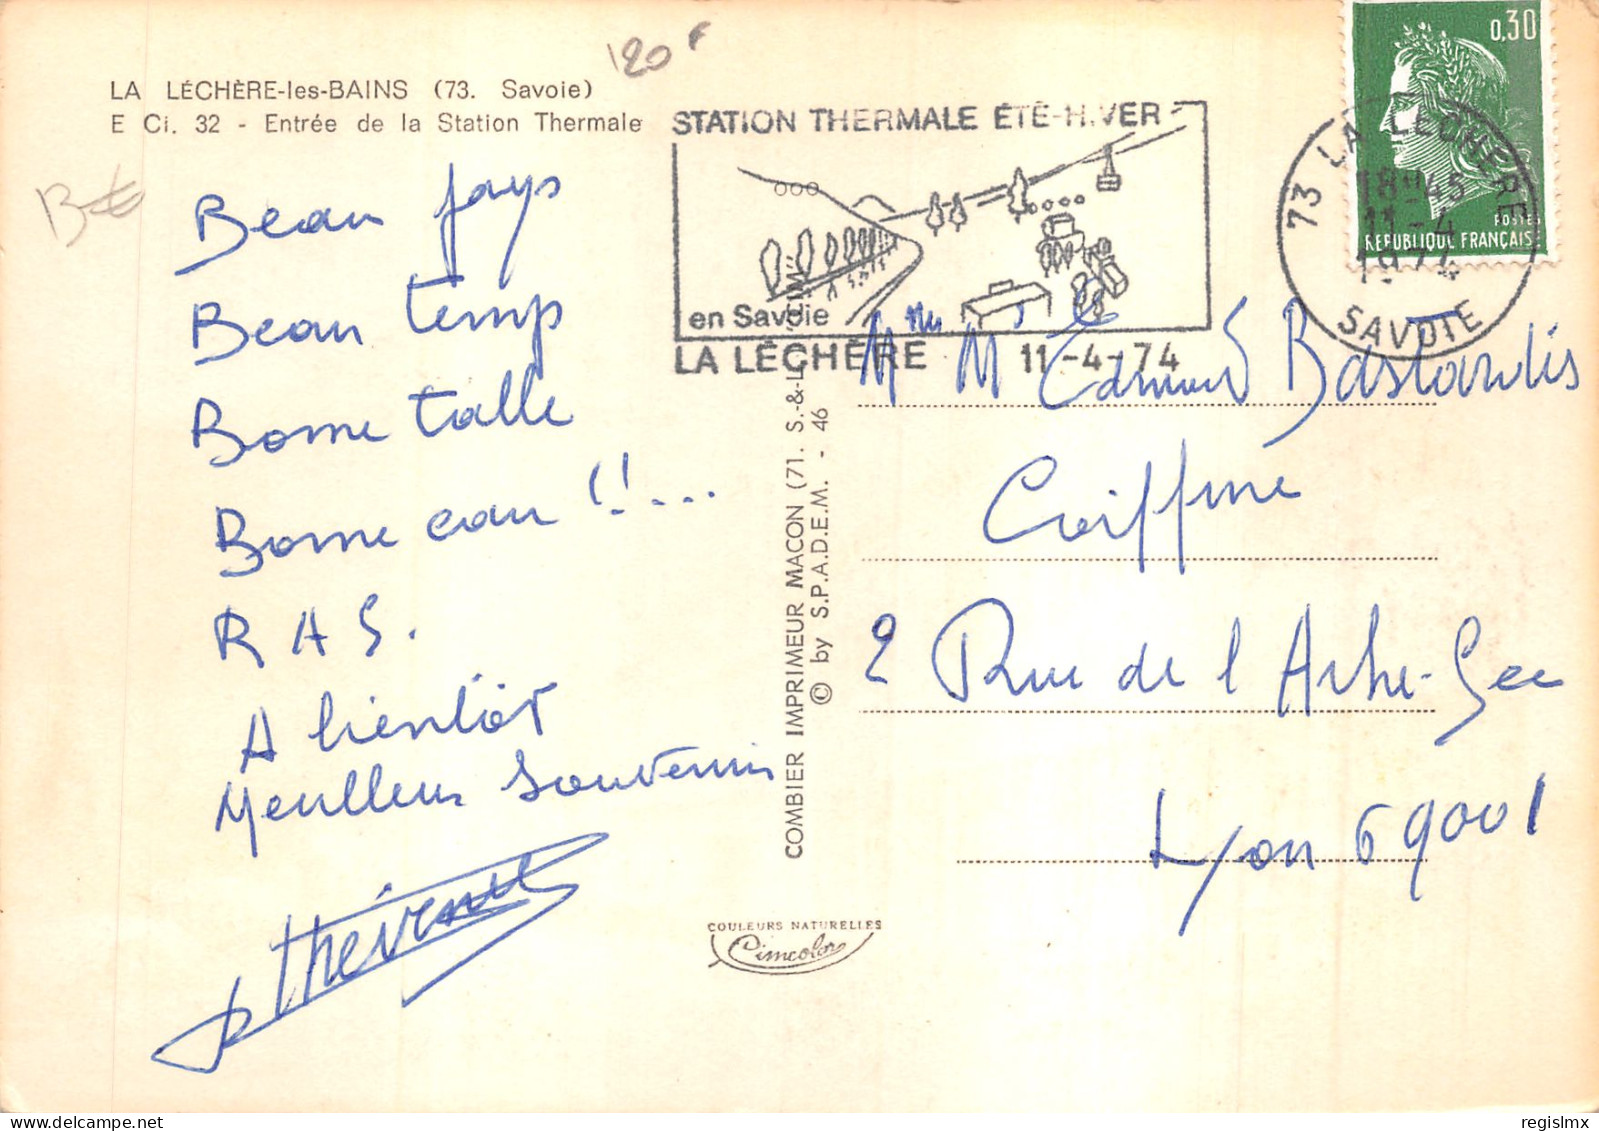 120 F
LA LÉCHÈRE-les-BAINS (73. Savoie)
E Ci. 32 - Entrée de la Station Thermale
Beau pays
Beau temps
Bonne table
Bonne eau !!...
R A S.
A bientôt
Meilleurs Souvenirs
Thévenet
STATION THERMALE ÉTÉ-HIVER
en Savoie
LA LÉCHÈRE 11-4-74
73 LA LECHERE
18H45
11-4
1974
SAVOIE
0,30
POSTES
REPUBLIQUE FRANÇAISE
COMBIER IMPRIMEUR MACON (71. S.-&-L.) "CIM"
© by S.P.A.D.E.M. - 46
COULEURS NATURELLES
Cimcolor
Mme M Edmond Bastardis
Coiffure
2 Rue de l Arbre-Sec
Lyon 69001
regislmx